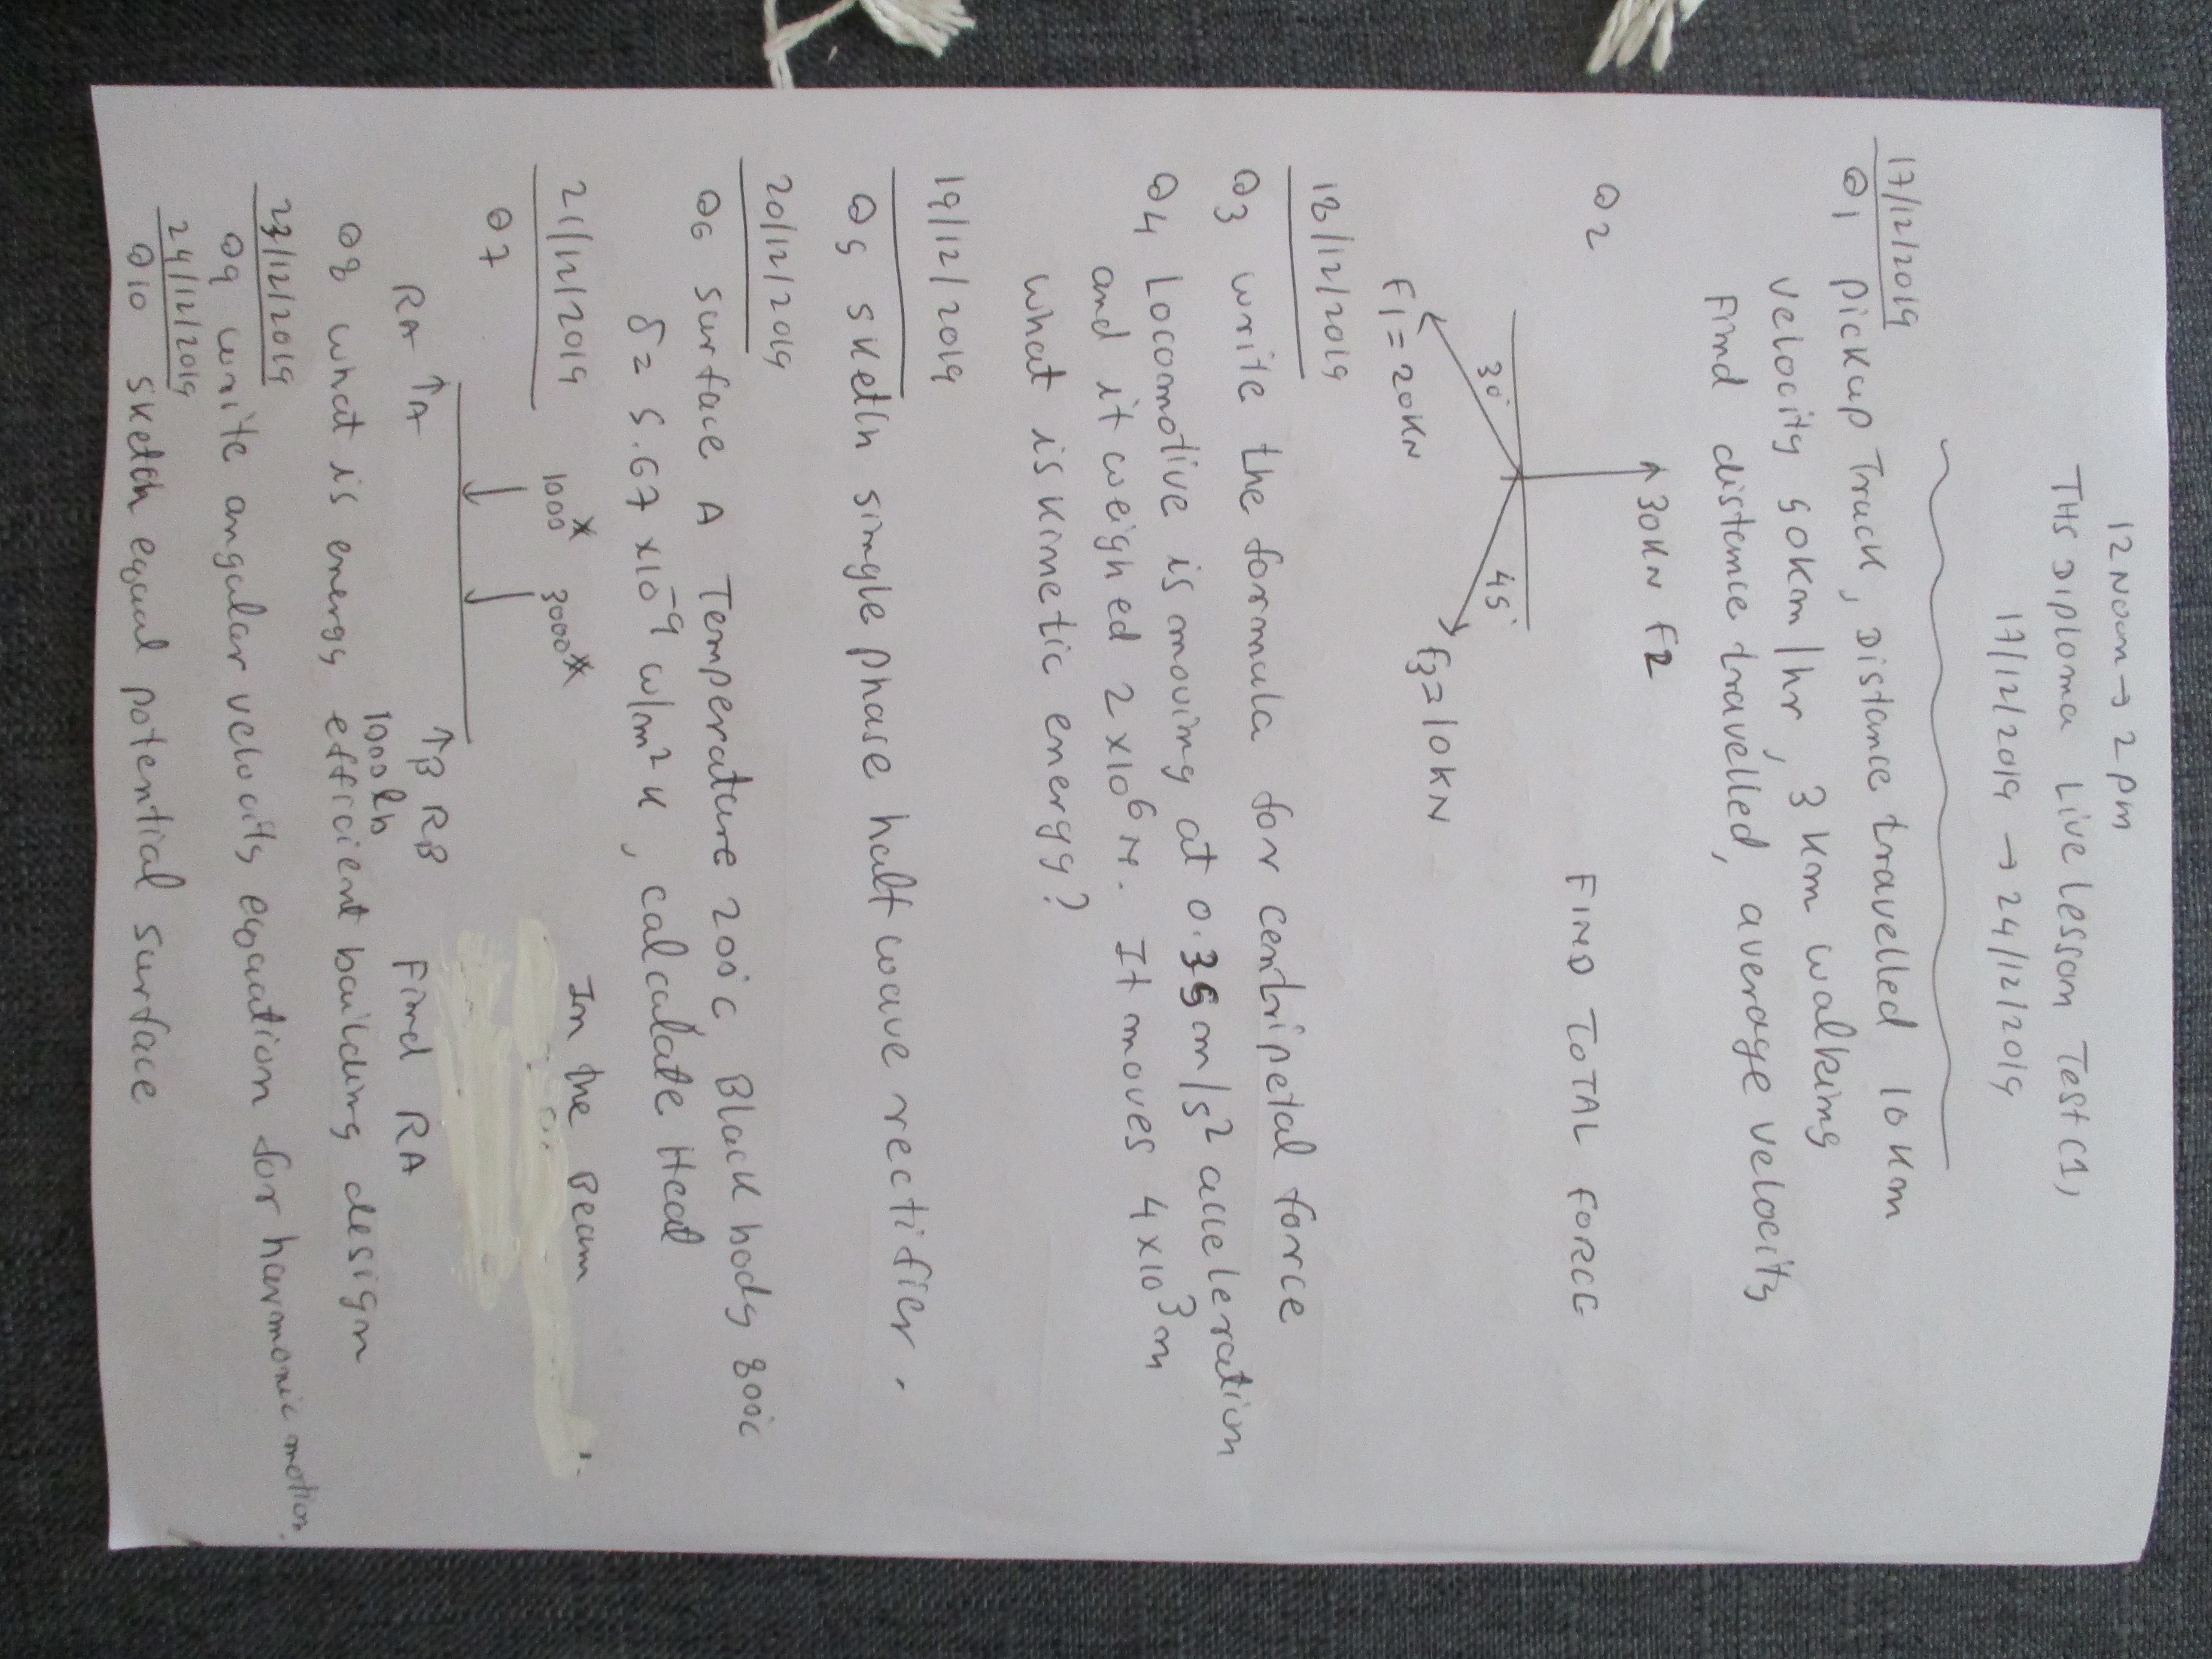 12 Noon → 2 pm
THS Diploma Live Lesson Test C1,
17/12/2019 → 24/12/2019
17/12/2019
Q1 Pickup Truck, Distance travelled 10 Km
velocity 50km/hr, 3 Km walking
Find distance travelled, average velocity
Q2
30KN F2
FIND TOTAL FORCE
30°
45°
F1 = 20KN
F3 = 10KN
18/12/2019
Q3 write the formula for centripetal force
Q4 Locomotive is moving at 0.35 m/s² acceleration
and it weighed 2 x10⁶ N. It moves 4 x10³ m
what is kinetic energy?
19/12/2019
Q5 sketch single phase half wave rectifier.
20/12/2019
Q6 surface A Temperature 200°C, Black body 800°C
δ = 5.67 x10⁻⁹ w/m² K, calculate Heat
21/12/2019
1000
3000
In the Beam
Q7
RA ↑A
↑B RB
Find RA
1000 lb
Q8 what is energy efficient building design
23/12/2019
Q9 write angular velocity equation for harmonic motion.
24/12/2019
Q10 sketch equal potential surface